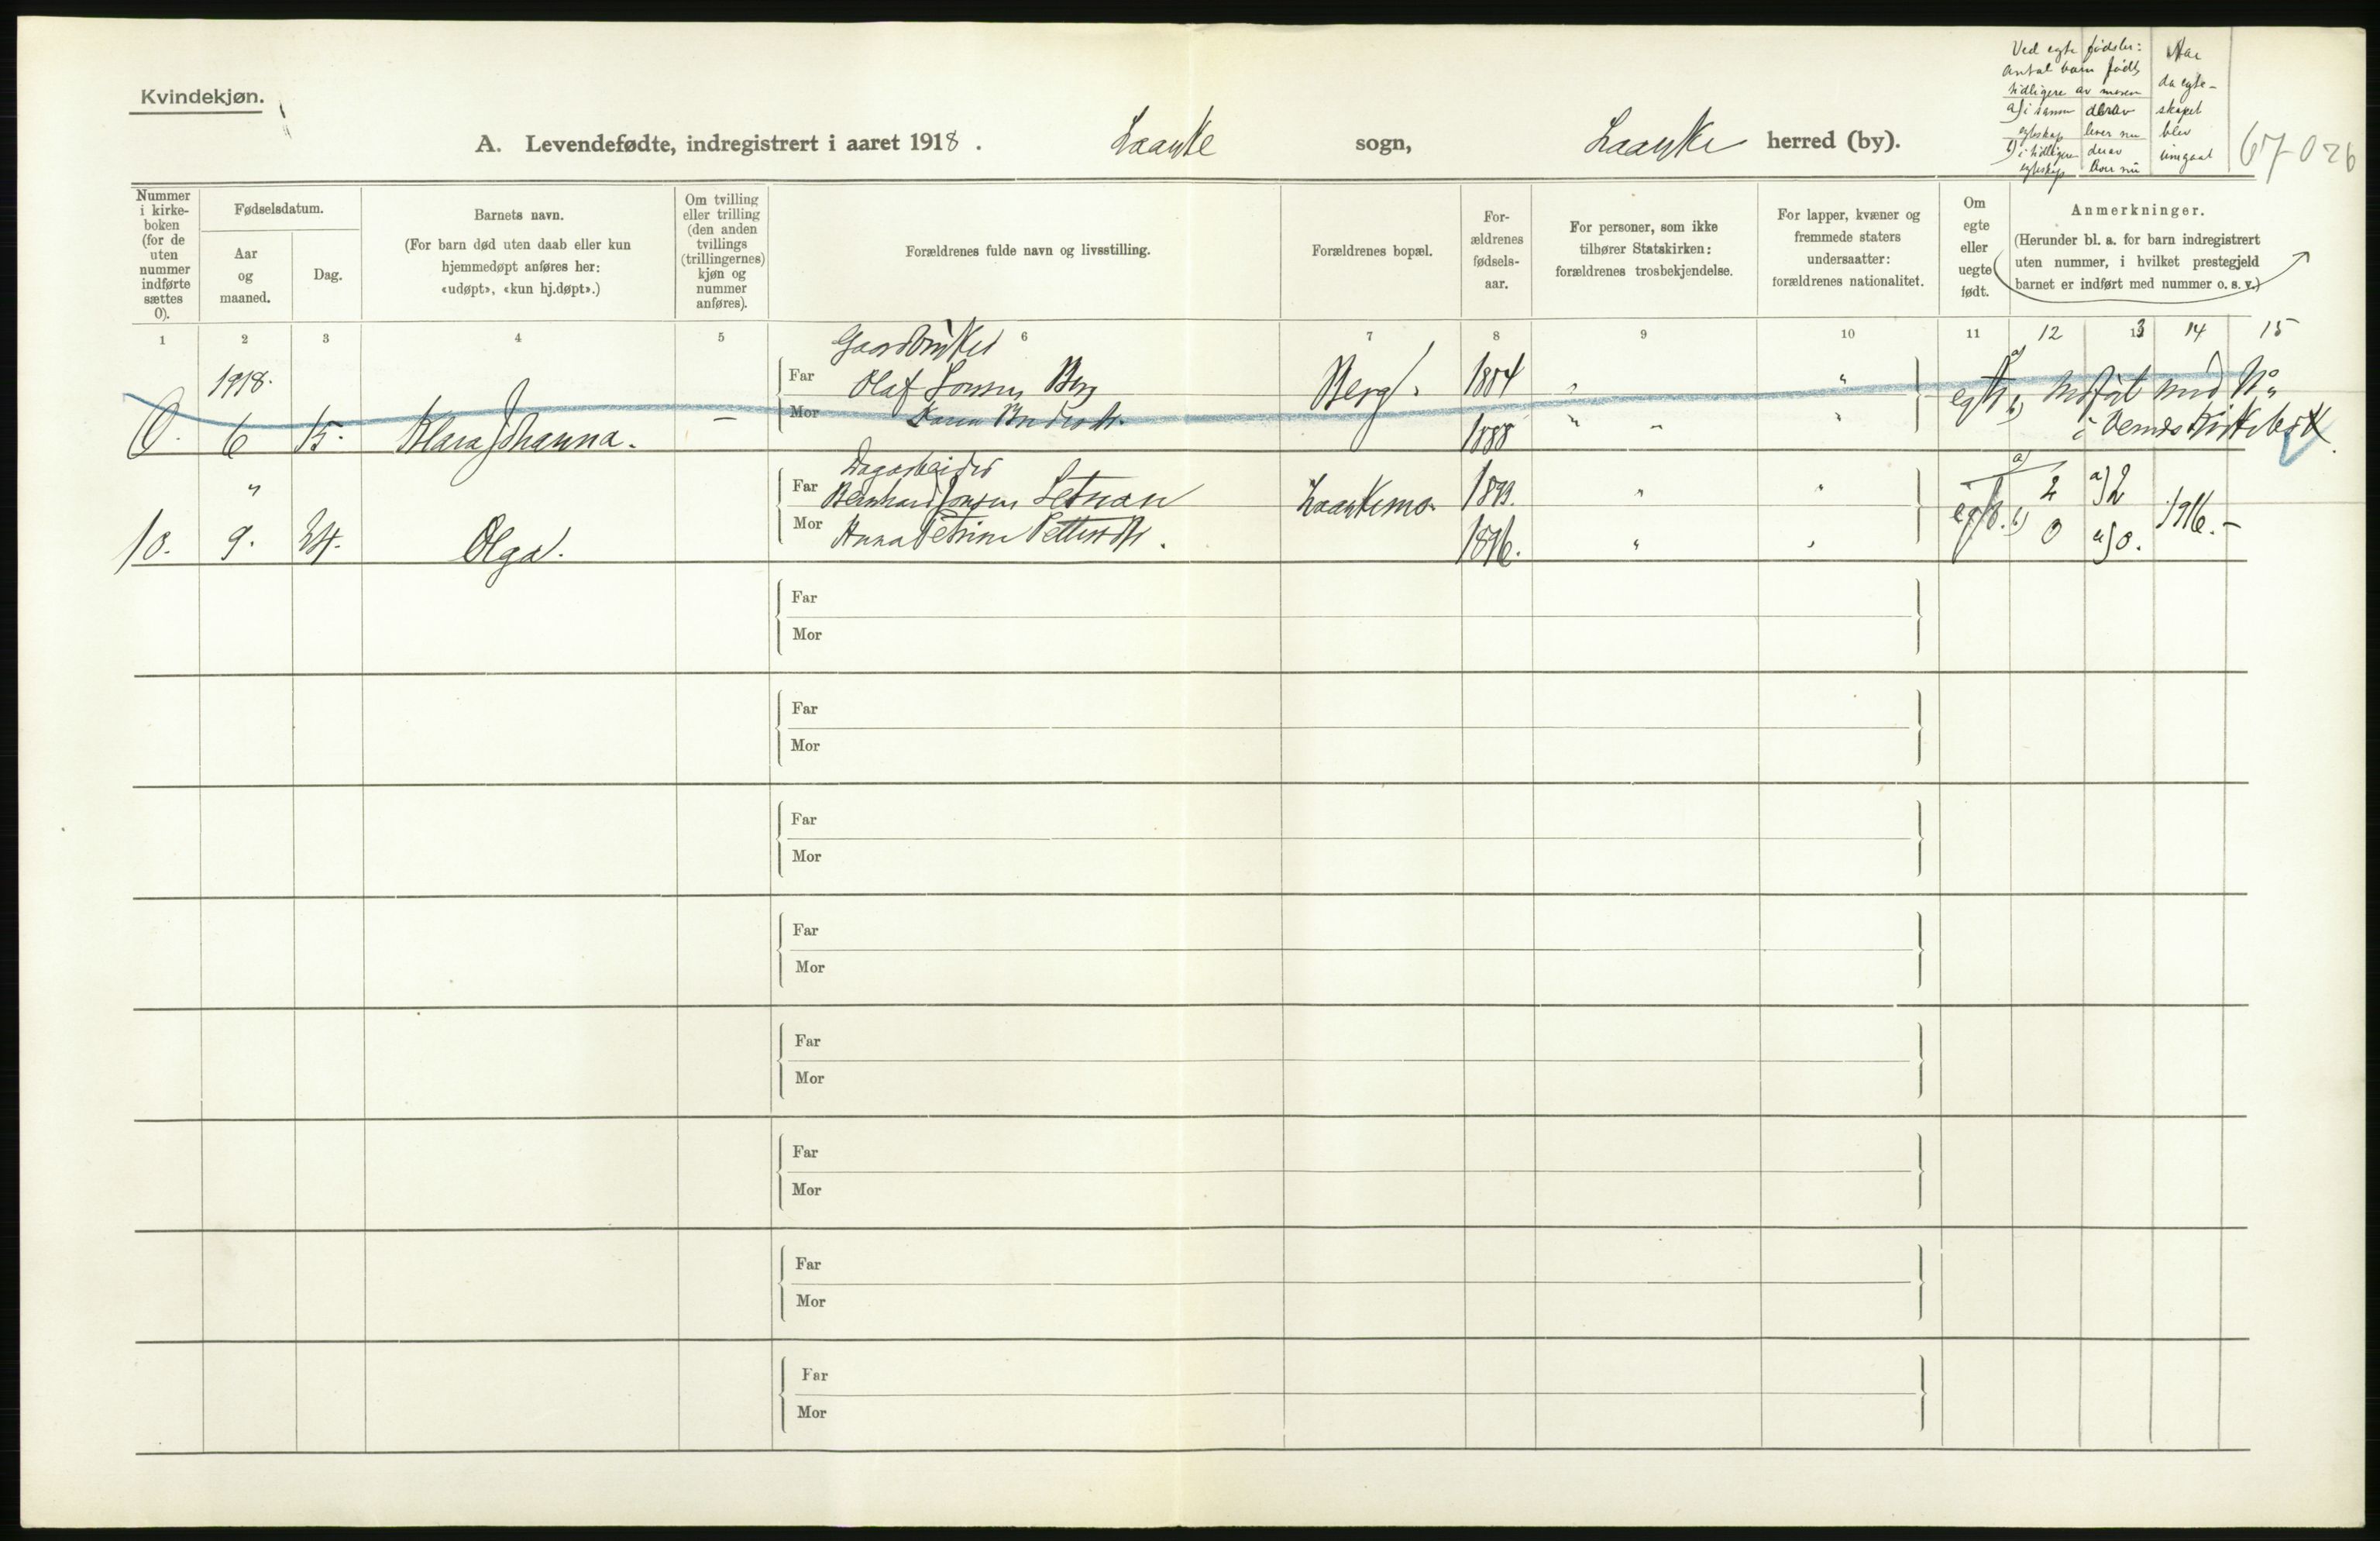 Kvindekjøn.
A. Levendefødte, indregistrert i aaret 1918. Laanke sogn, Laanke herred (by).
Ved egte fødsler:
Antal barn født
tidligere av moren
a) i samme egteskap
derav lever nu
b) i tidligere egteskap
derav lever nu
Aar
da egte-
skapet
blev
inngaat
67-026
Nummer
i kirke-
boken
(for de
uten
nummer
indførte
sættes
0).
Fødselsdatum.
Aar
og
maaned.
Dag.
Barnets navn.
(For barn død uten daab eller kun
hjemmedøpt anføres her:
«udøpt», «kun hj.døpt».)
Om tvilling
eller trilling
(den anden
tvillings
(trillingernes)
kjøn og
nummer
anføres).
Forældrenes fulde navn og livsstilling.
Forældrenes bopæl.
For-
ældrenes
fødsels-
aar.
For personer, som ikke
tilhører Statskirken:
forældrenes trosbekjendelse.
For lapper, kvæner og
fremmede staters
undersaatter:
forældrenes nationalitet.
Om
egte
eller
uegte
født.
Anmerkninger.
(Herunder bl. a. for barn indregistrert
uten nummer, i hvilket prestegjeld
barnet er indført med nummer o. s. v.)
1 2 3 4 5 6 7 8 9 10 11 12 13 14 15
Gaardbruker
1918. Far Olaf Berg Berg. 1884 " " egte a) Indført med No
0. 6 15. Klara Johanna. - Mor 1888 " " " b) i kirkebok
Dagarbeider
" Far Bernhard Jonsen Letnan Laankemo. 1893. " " egte. a) 2 a) 2 1916. -
10. 9. 24. Olga. Mor Anna Petrine Pettersdtr. 1896. " " b) 0 a) 0.
Far
Mor
Far
Mor
Far
Mor
Far
Mor
Far
Mor
Far
Mor
Far
Mor
Far
Mor